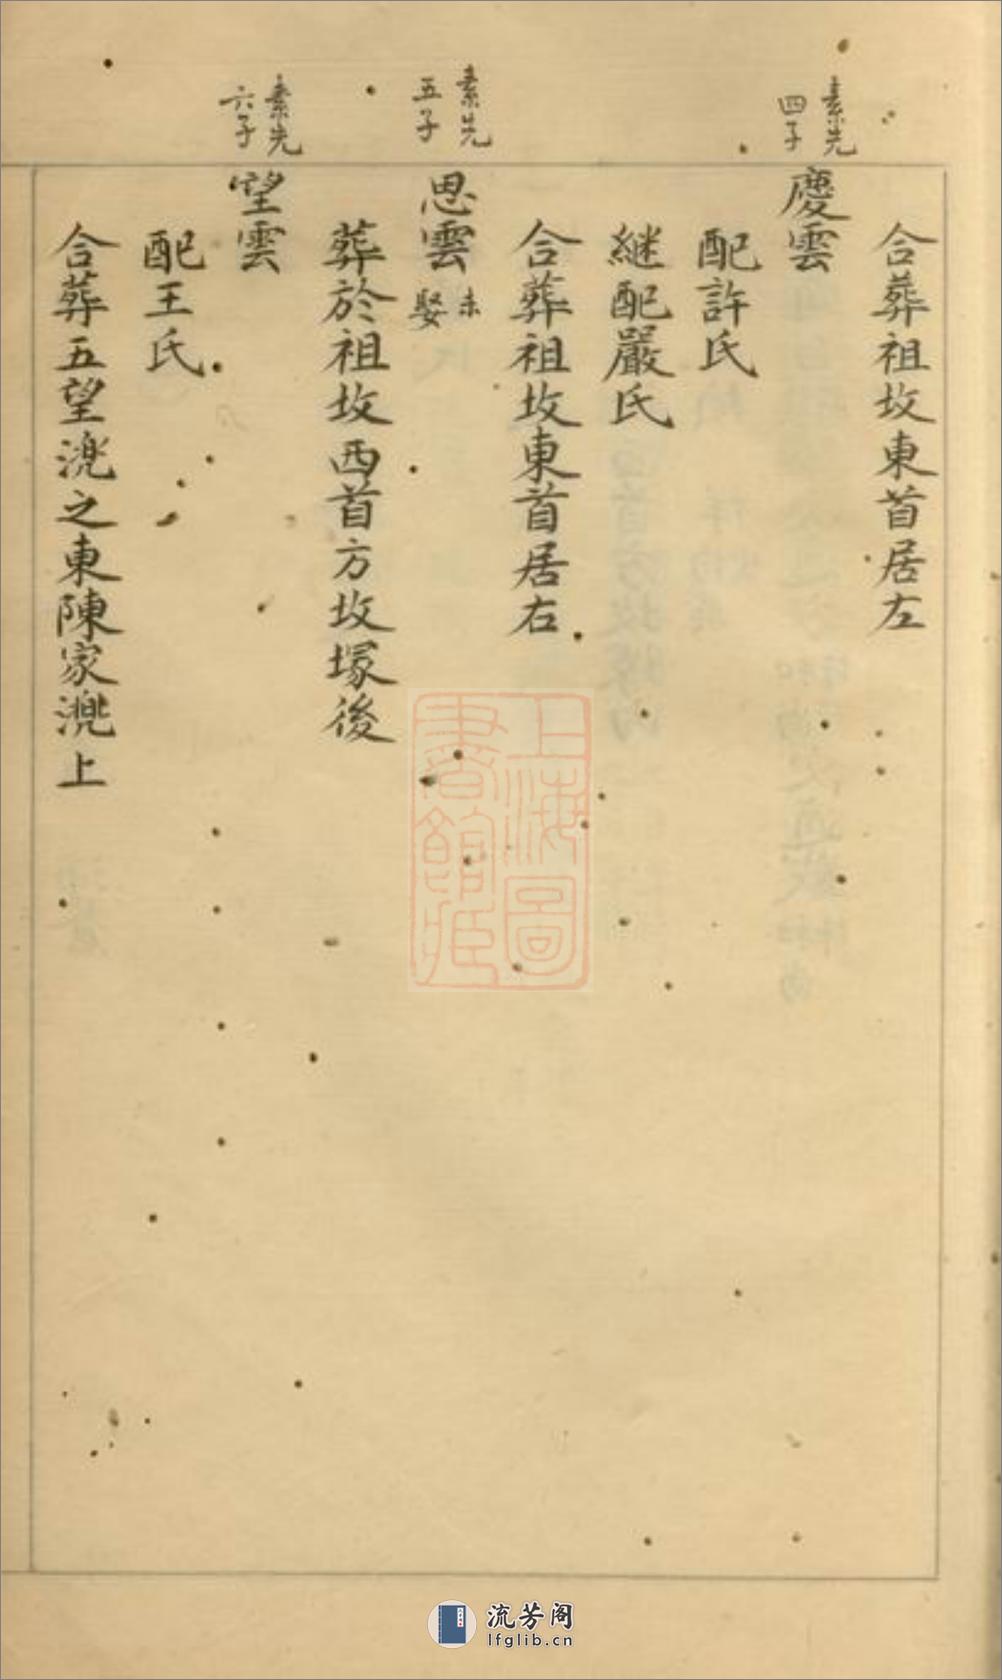 合葬祖坟東首居左
素先四子
慶雲
配許氏
継配嚴氏
合葬祖坟東首居右
素先五子
思雲 未娶
葬於祖坟西首方坟塚後
素先六子
望雲
配王氏
合葬五望漉之東陳家漉上
上海圖書館藏
流芳阁
lfglib.cn